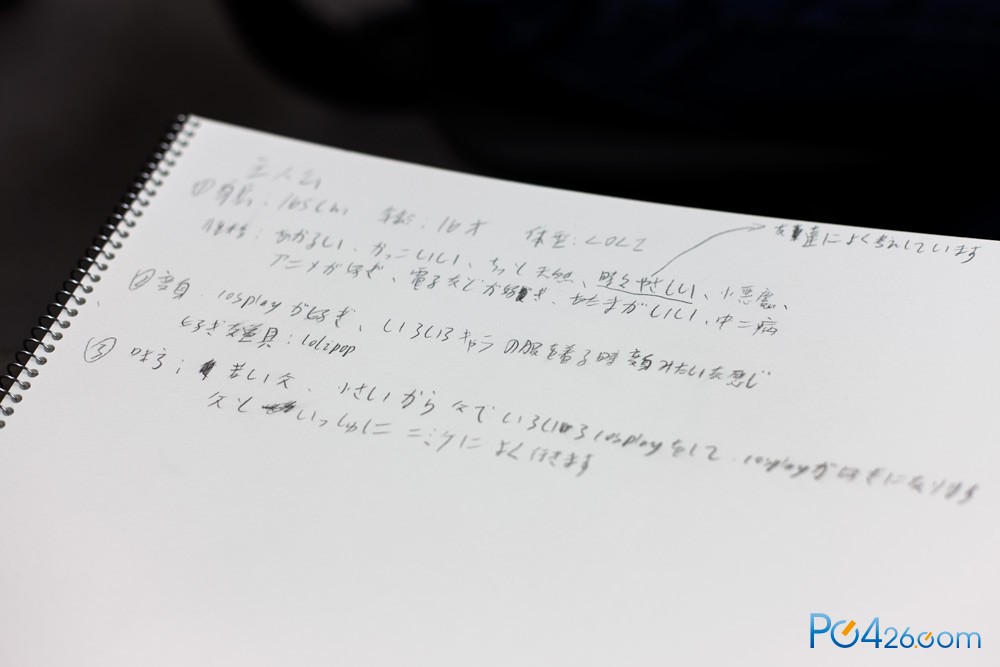 主人公
①身長：165cm 年齢：16才 体型：LOLI
友達によく~~しています
性格：あかるい、かっこいい、ちょっと天然、時々やさしい、小悪魔、
アニメが好き、電子などが好き、あたまがいい、中二病
②変身．cosplayが好き、いろいろキャラの服を着る時変身みたいな感じ
好き道具：lolipop
③味方；若い父．小さいから父でいろいろcosplayをして．cosplayが好きになります
父といっしょにコミケによく行きます
PC426.com